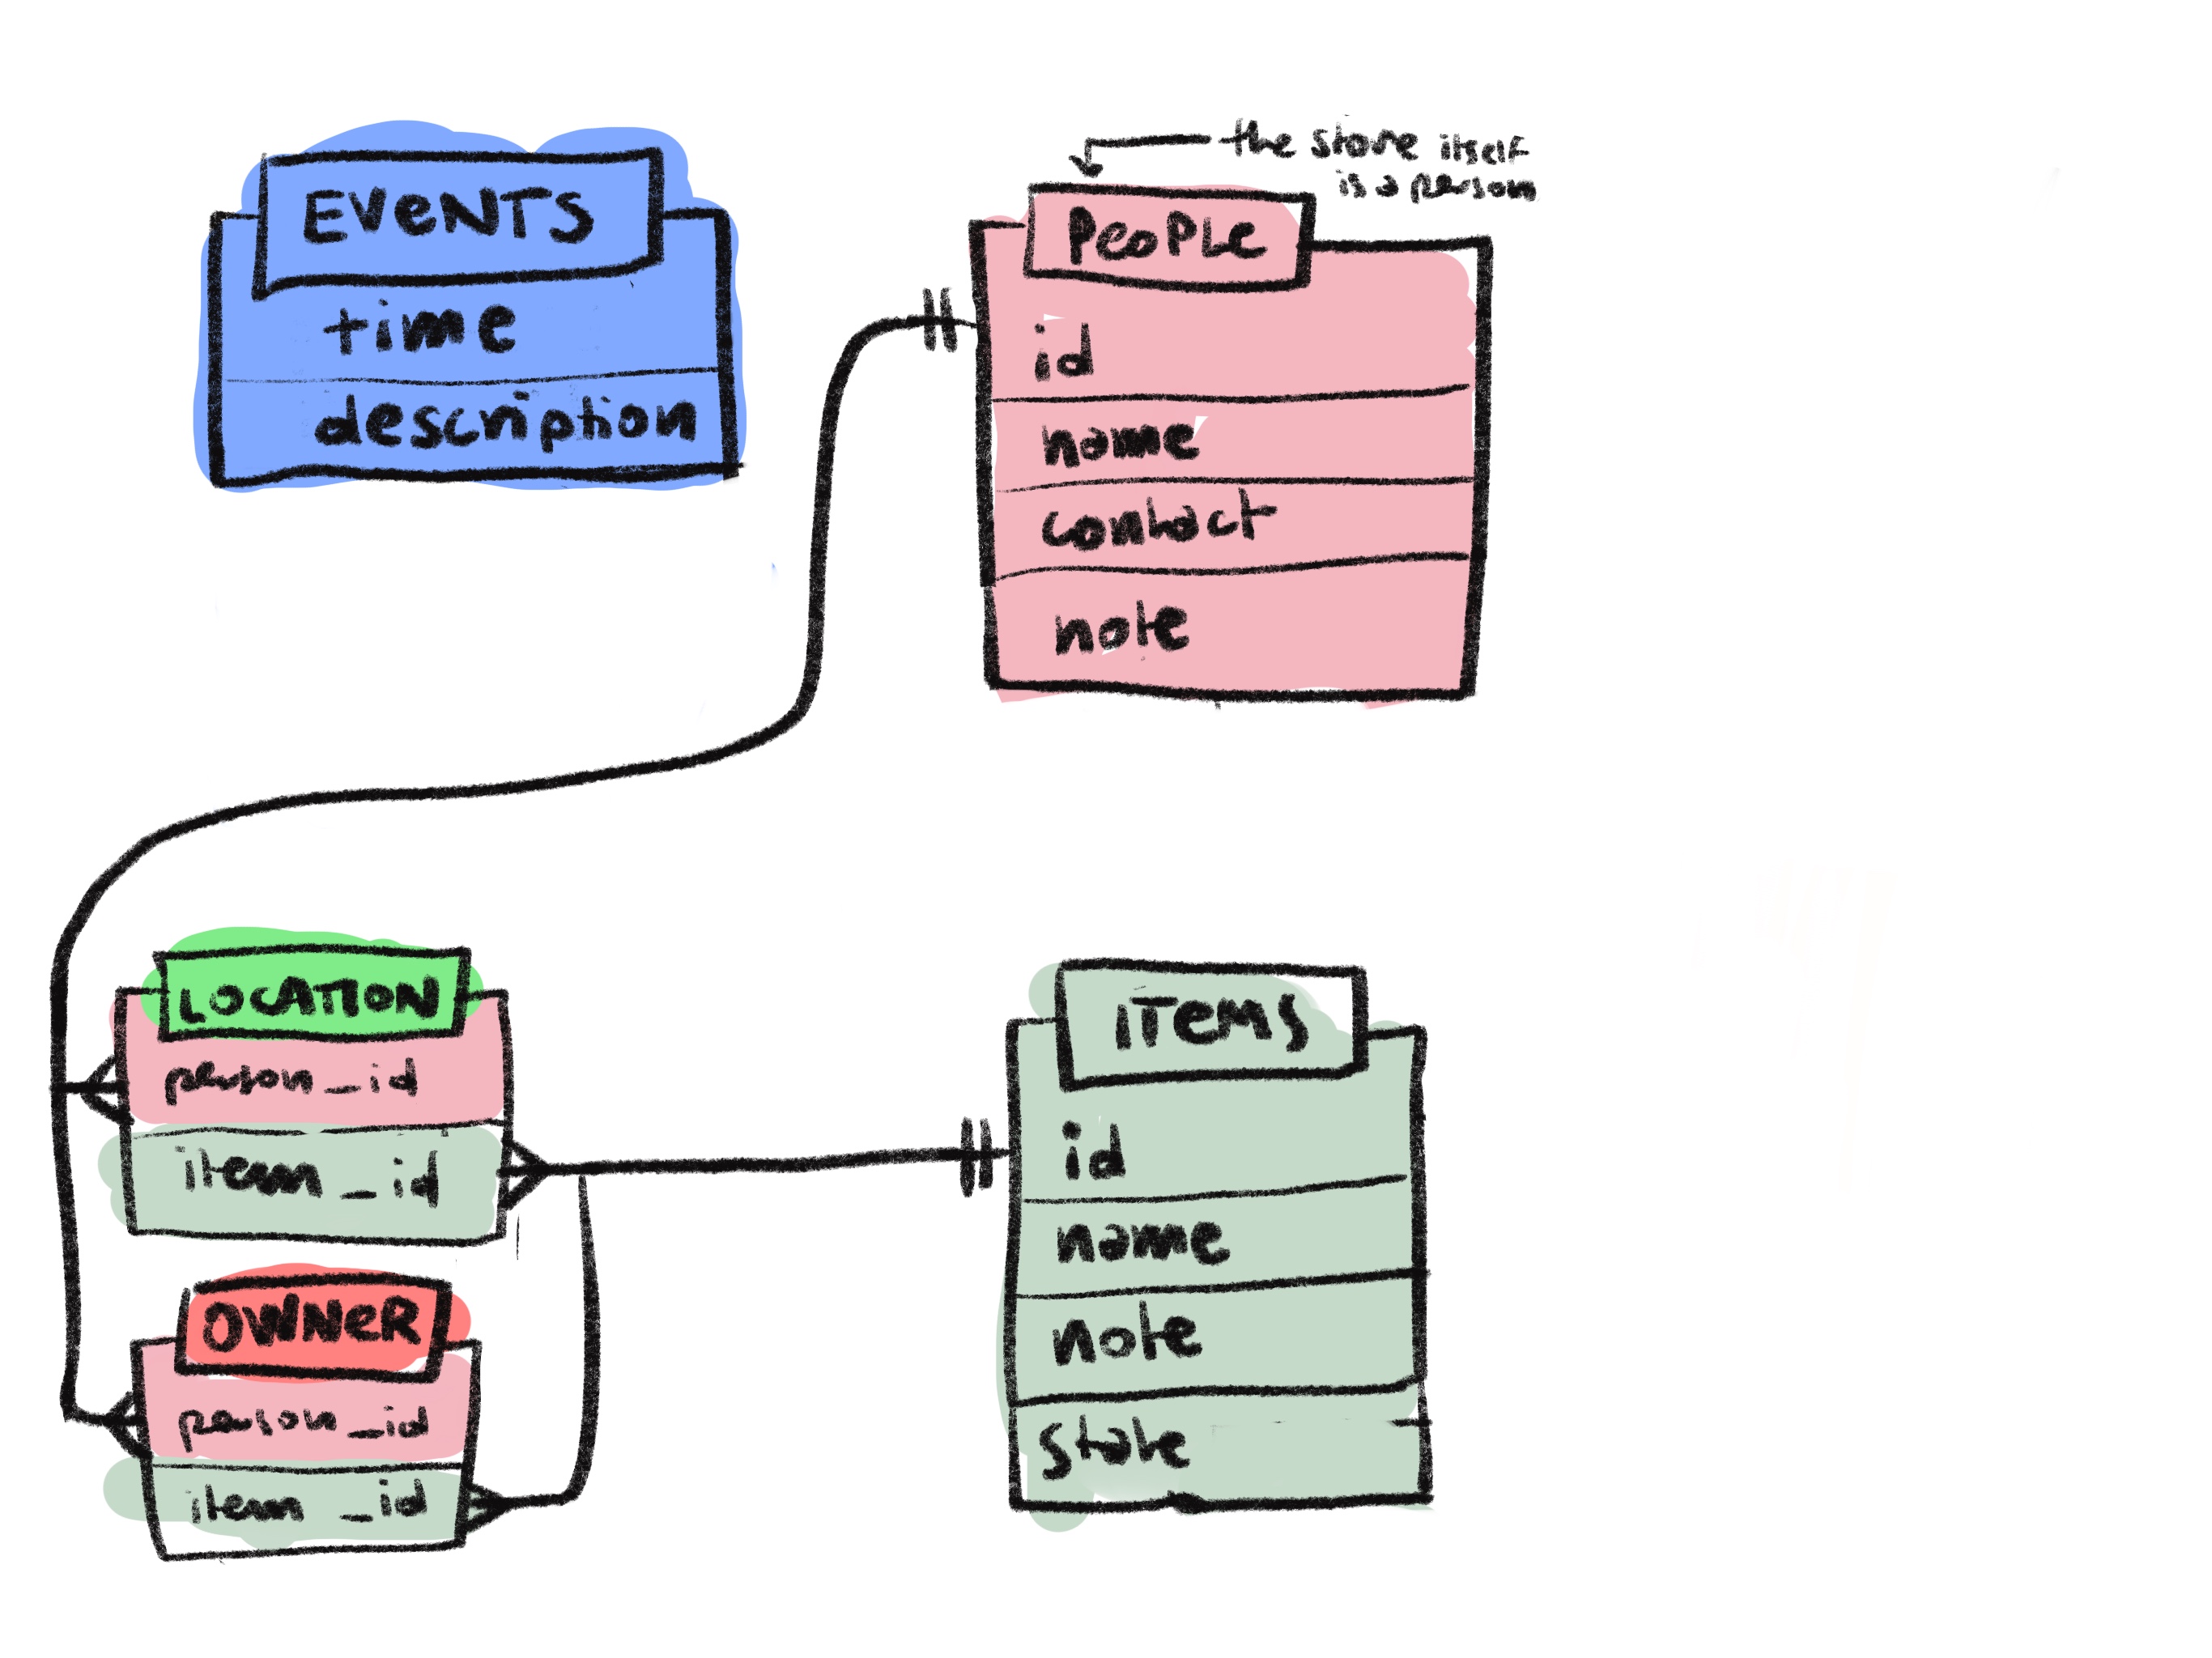 EVENTS
time
description
the store itself
is a person
PEOPLE
id
name
contact
note
LOCATION
person_id
item_id
OWNER
person_id
item_id
ITEMS
id
name
note
state